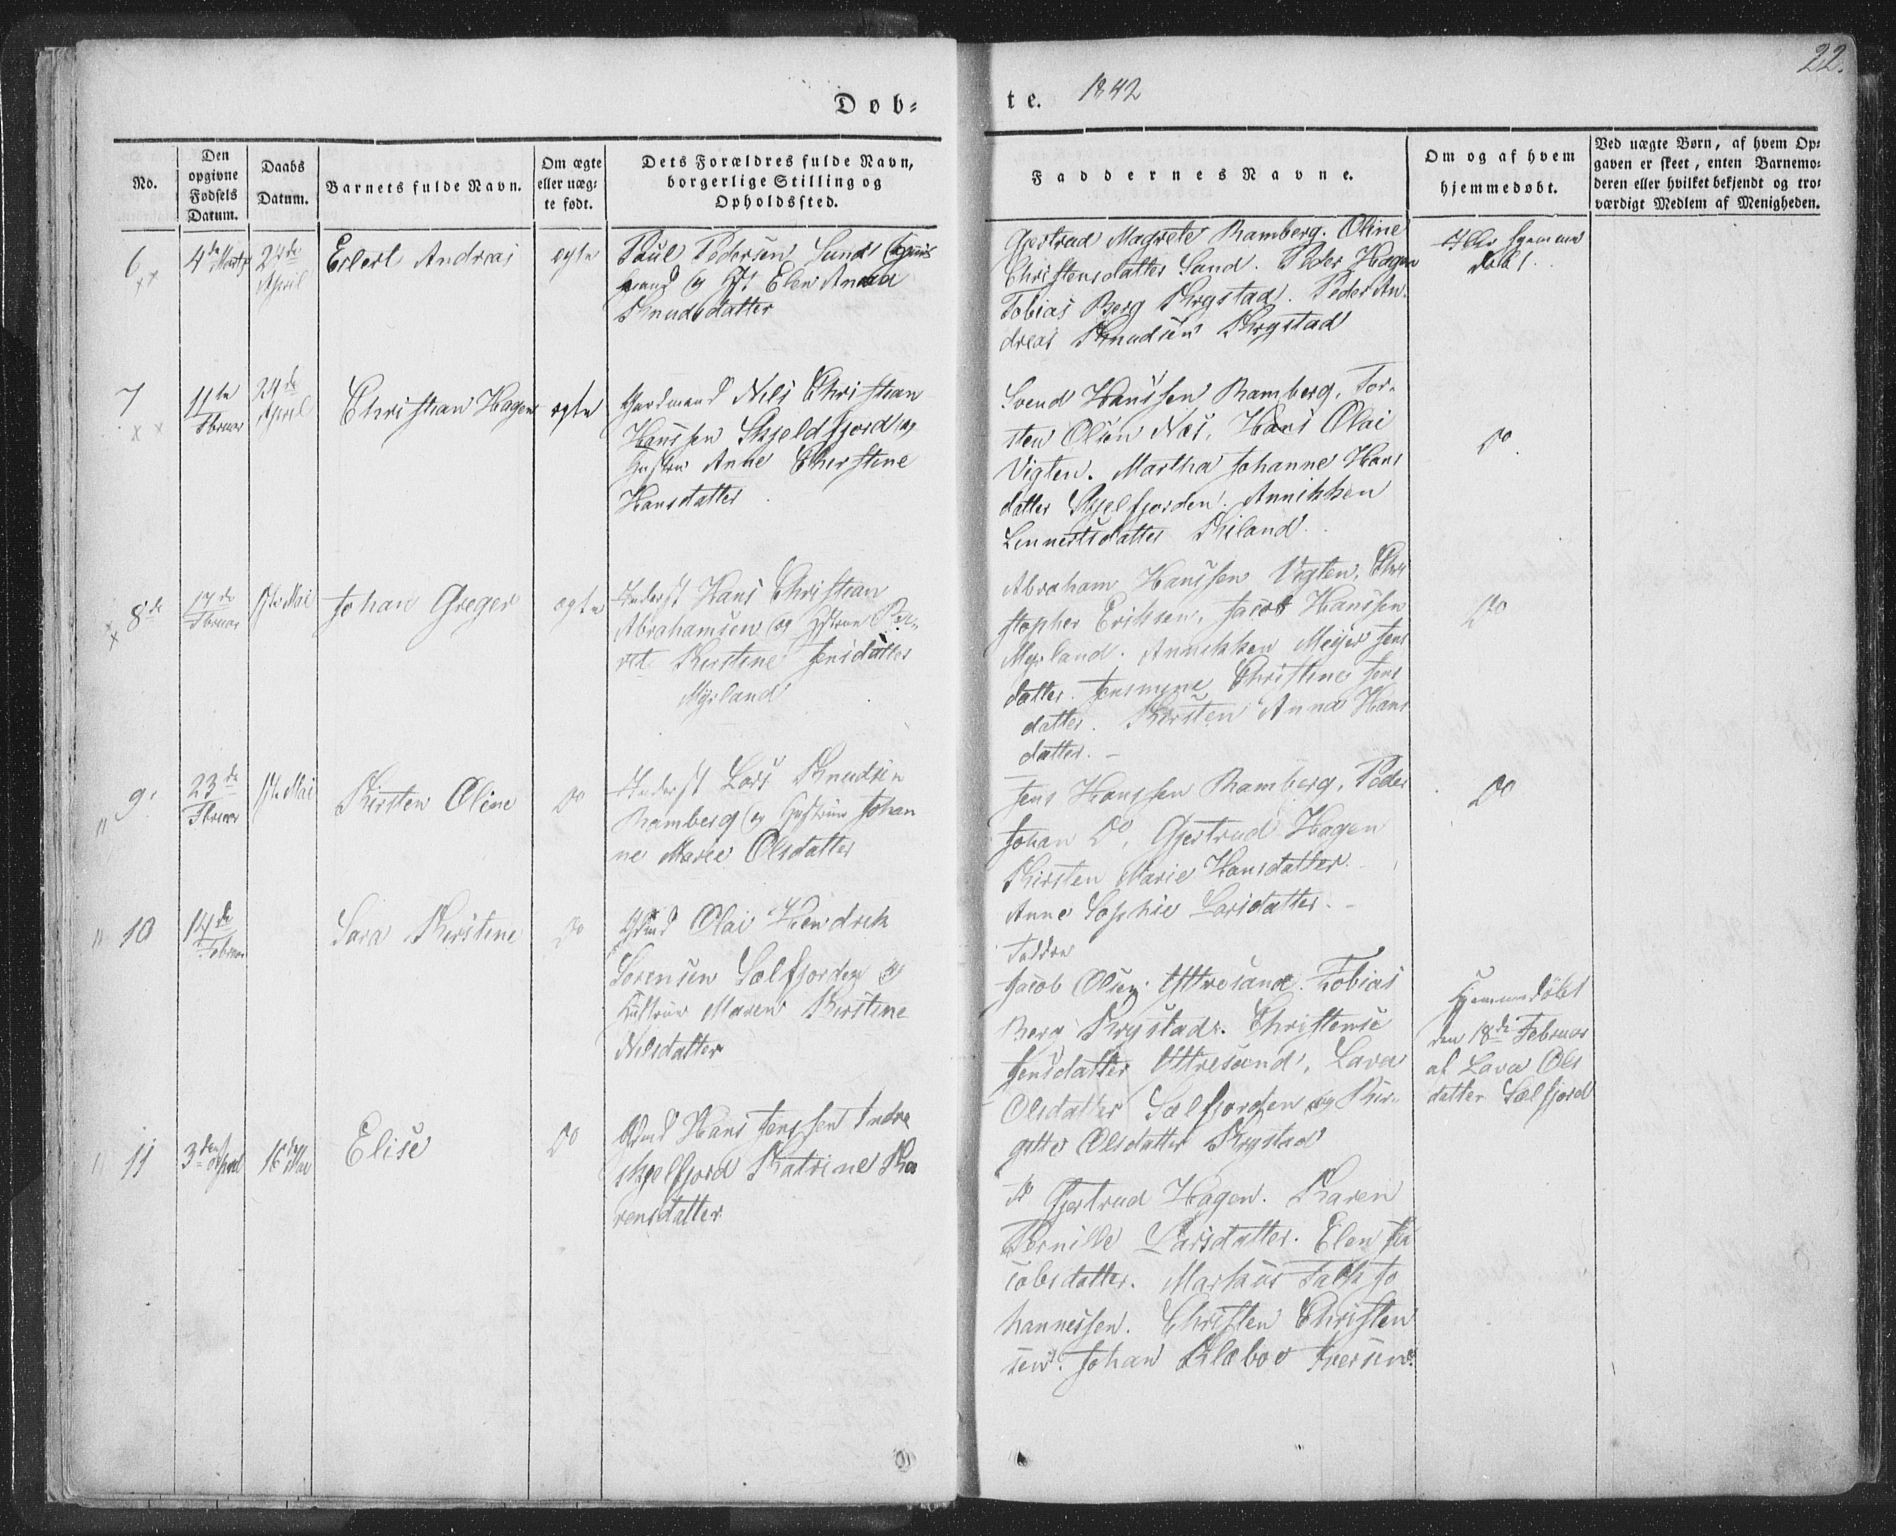 22.
Døb-
te. 1842
No.
Den opgivne Fødsels Datum.
Daabs Datum.
Barnets fulde Navn.
Om ægte eller uægte født.
Dets Forældres fulde Navn, borgerlige Stilling og Opholdssted.
Faddernes Navne.
Om og af hvem hjemmedøbt.
Ved uægte Børn, af hvem Opgaven er skeet, enten Barnemoderen eller hvilket bekjendt og troværdigt Medlem af Menigheden.
6
4de Marts
24de April
Eilert Andreas
ægte
Paul Pedersen Sund
og Elen Anna
Knudsdatter
Gjertrud Magrete Ramberg. Oline
Christensdatter Sand. Peder Hagen
Tobias Berg Krystad. Peder An-
dreas Knudsen Krystad
Ikke hjemme
døbt.
7
11te Februar
24de April
Christian Hagen
ægte
Gaardmand Nils Christian
Hanssen Skjeldfjord og
Hustru Anne Christine
Hansdatter
Svend Hanssen Ramberg, Tor-
sten Olsen Næs, Hans Olai
Vigten. Martha Johanne Hans
datter Skjelfjorden. Annikken
Lennertsdatter Kiland.
Do.
8de
17de Februar
1ste Mai
Johan Greger
ægte
Inderst Hans Christian
Abrahamsen og Hustrue Be-
ret Kirstine Jensdatter
Myrland
Abraham Hanssen Vigten, Chri
stopher Eriksen, Jacob Hanssen
Myrland. Annikken Meyer Jens
datter. Jensmine Christine Jens
datter. Kirsten Anna Hans
datter. -
Do
9.
23de Februar
1ste Mai
Kirsten Oline
Do
Inderst Lars Knudsen
Ramberg og Hustrue Johan
ne Marie Olsdatter
Jens Hanssen Ramberg, Peder
Johan Do, Gjertrud Hagen
Kirsten Marie Hansdatter.
Anne Sophie Larsdatter. -
Do
10
14de Februar
Sara Kirstine
Do
Gdmd Olai Hendrik
Sørensen Sælfjorden og
Hustrue Maren Kirstine
Nilsdatter
Faddre
Jacob Olsen Yttresand. Tobias
Berg Krystad. Christense
Jensdatter Yttresand, Lava
Olsdatter Sælfjorden og Bir-
gitte Olsdatter Krystad
Hjemmedøbt
den 18de Februar
af Lava Ols
datter Sælfjord
11
3de April
16de Mai
Elise
Do
Gdmd Hans Jenssen Indre
skjelfjord Katrine Ka
rensdatter
Gjertrud Hagen. Karen
Pernille Larsdatter. Elen Ja
cobsdatter. Markus Falk Jo
hannessen. Christen Christen
sen. Johan Klæboe Iversen.